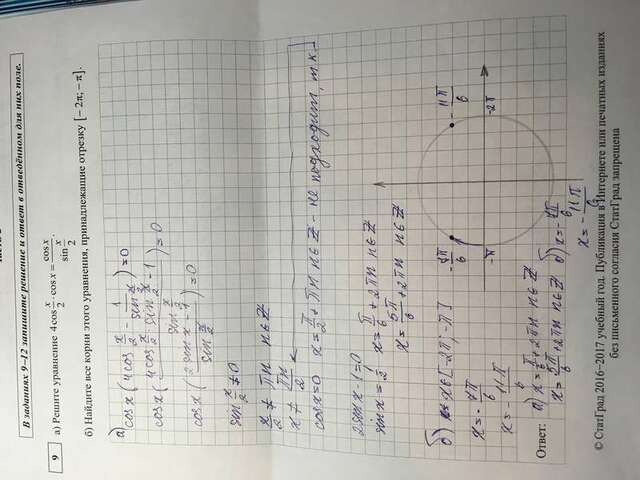 В заданиях 9–12 запишите решение и ответ в отведённом для них поле.
9
а) Решите уравнение 4cos x/2 · cos x = cos x / sin x/2.
б) Найдите все корни этого уравнения, принадлежащие отрезку [−2π; −π].
а)
cos x (4cos x/2 − 1/sin x/2) = 0
cos x (4cos x/2 sin x/2 − 1 / sin x/2) = 0
cos x (2 sin x − 1 / sin x/2) = 0
sin x/2 ≠ 0
x/2 ≠ πn n∈Z
x ≠
cos x = 0 x = π/2 + πn n∈Z – не подходит, т.к.
2sin x − 1 = 0
sin x = 1/2 x = π/6 + 2πn n∈Z
x = 5π/6 + 2πn n∈Z
б) x∈[−2π; −π]
x = −7π/6
x = −11π/6
−7π/6
−π
−11π/6
−2π
Ответ: а) x = π/6 + 2πn n∈Z
x = 5π/6 + 2πn n∈Z
б) x = −7π/6
x = −11π/6
© СтатГрад 2016–2017 учебный год. Публикация в Интернете или печатных изданиях
без письменного согласия СтатГрад запрещена